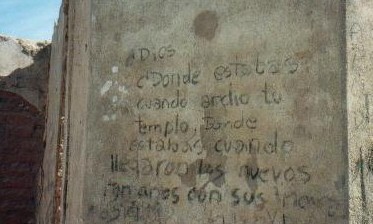 Dios
¿Donde estabas
cuando ardio tu
templo, Donde
estabas cuando
llegaron los nuevos
años con sus